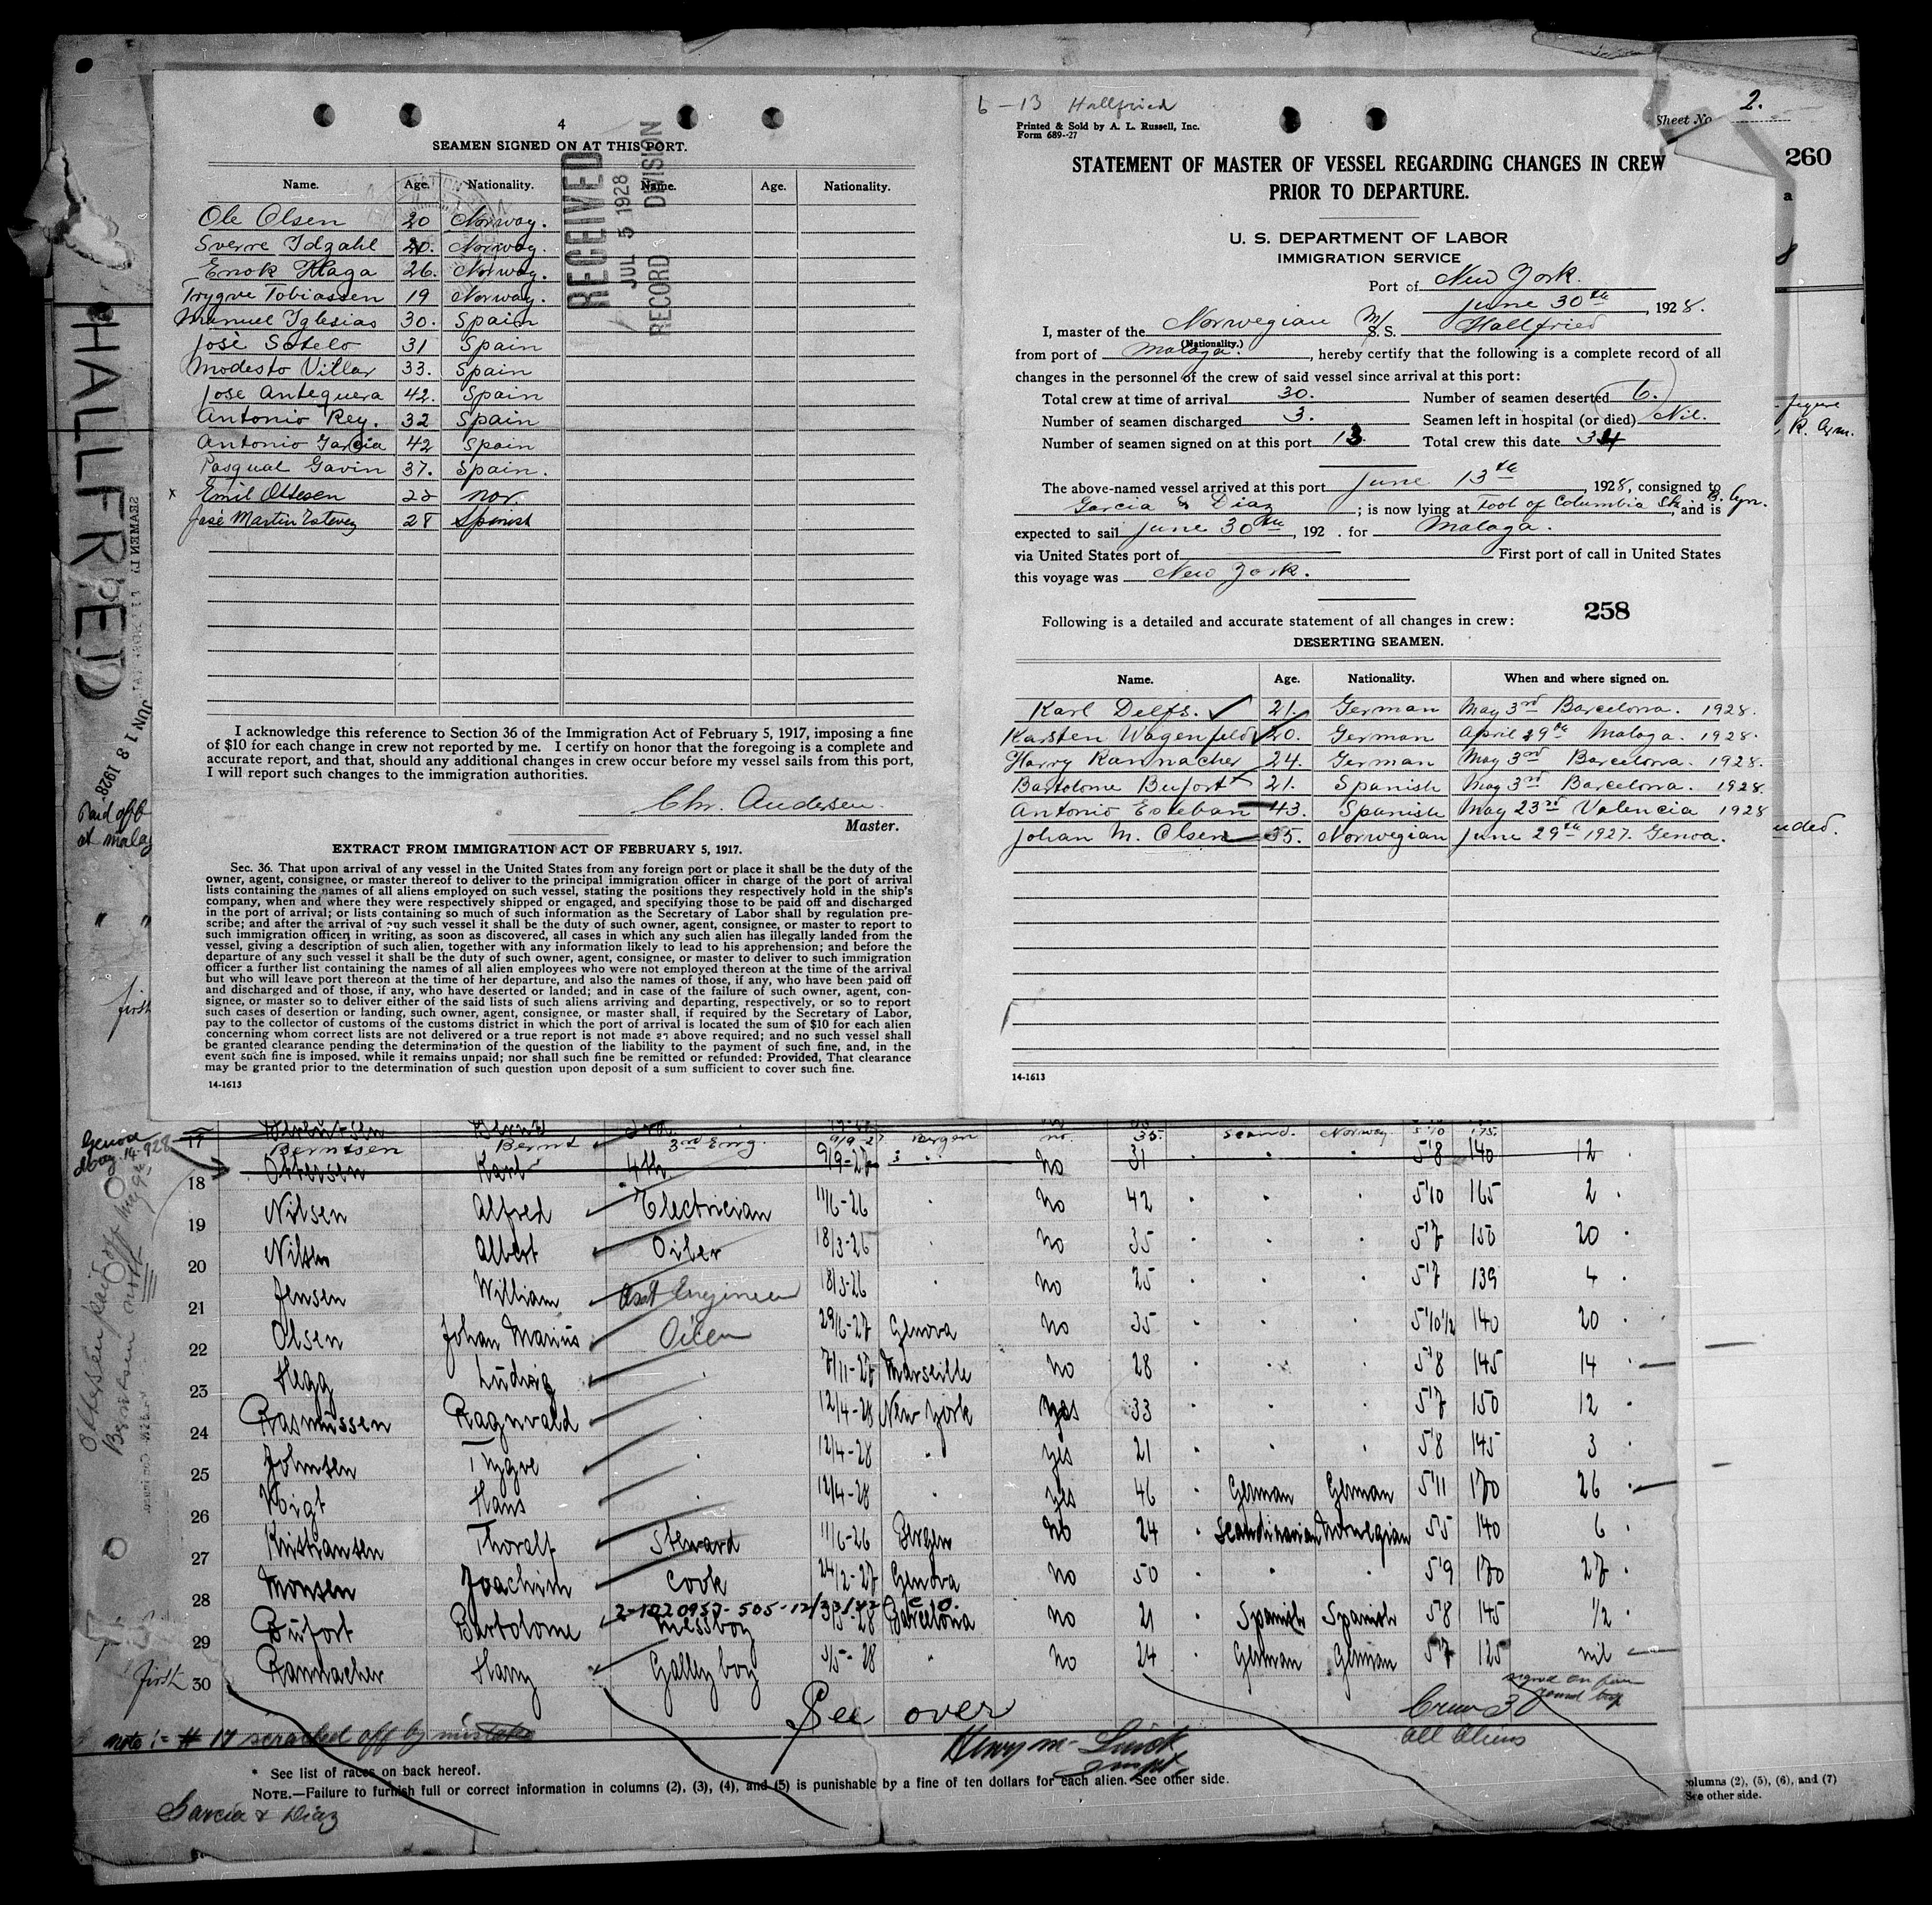 4
SEAMEN SIGNED ON AT THIS PORT.
RECEIVED
JUL 5 1928
RECORD DIVISION
Name. Age. Nationality. Name. Age. Nationality.
Ole Olsen 20 Norway.
Sverre Idzahl 20. Norway.
Enok Haga 26. Norway.
Trygve Tobiassen 19 Norway.
Manuel Iglesias 30. Spain
José Sotelo 31 Spain
Modesto Villar 33. Spain
José Antequera 42. Spain
Antonio Rey. 32 Spain
Antonio Garcia 42 Spain
Pasqual Gavin 37. Spain.
x Emil Ottesen 22 nor.
José Martin Estevez 28 Spanish
I acknowledge this reference to Section 36 of the Immigration Act of February 5, 1917, imposing a fine
of $10 for each change in crew not reported by me. I certify on honor that the foregoing is a complete and
accurate report, and that, should any additional changes in crew occur before my vessel sails from this port,
I will report such changes to the immigration authorities.
Chr. Andersen.
Master.
EXTRACT FROM IMMIGRATION ACT OF FEBRUARY 5, 1917.
Sec. 36. That upon arrival of any vessel in the United States from any foreign port or place it shall be the duty of the
owner, agent, consignee, or master thereof to deliver to the principal immigration officer in charge of the port of arrival
lists containing the names of all aliens employed on such vessel, stating the positions they respectively hold in the ship's
company, when and where they were respectively shipped or engaged, and specifying those to be paid off and discharged
in the port of arrival; or lists containing so much of such information as the Secretary of Labor shall by regulation pre-
scribe; and after the arrival of any such vessel it shall be the duty of such owner, agent, consignee, or master to report to
such immigration officer, in writing, as soon as discovered, all cases in which any such alien has illegally landed from the
vessel, giving a description of such alien, together with any information likely to lead to his apprehension; and before the
departure of any such vessel it shall be the duty of such owner, agent, consignee, or master to deliver to such immigration
officer a further list containing the names of all alien employees who were not employed thereon at the time of the arrival
but who will leave port thereon at the time of her departure, and also the names of those, if any, who have been paid off
and discharged and of those, if any, who have deserted or landed; and in case of the failure of such owner, agent, con-
signee, or master so to deliver either of the said lists of such aliens arriving and departing, respectively, or so to report
such cases of desertion or landing, such owner, agent, consignee, or master shall, if required by the Secretary of Labor,
pay to the collector of customs of the customs district in which the port of arrival is located the sum of $10 for each alien
concerning whom correct lists are not delivered or a true report is not made as above required; and no such vessel shall
be granted clearance pending the determination of the question of the liability to the payment of such fine, and, in the
event such fine is imposed, while it remains unpaid; nor shall such fine be remitted or refunded: Provided, That clearance
may be granted prior to the determination of such question upon deposit of a sum sufficient to cover such fine.
14-1613
6-13 Hallfried
Printed & Sold by A. L. Russell, Inc.
Form 689--27
Sheet No 2.
STATEMENT OF MASTER OF VESSEL REGARDING CHANGES IN CREW
PRIOR TO DEPARTURE.
U. S. DEPARTMENT OF LABOR
IMMIGRATION SERVICE
Port of New York.
June 30th, 1928.
I, master of the Norwegian M/S. S. Hallfried
(Nationality.)
from port of Malaga., hereby certify that the following is a complete record of all
changes in the personnel of the crew of said vessel since arrival at this port:
Total crew at time of arrival 30. Number of seamen deserted 6.
Number of seamen discharged 3. Seamen left in hospital (or died) Nil.
Number of seamen signed on at this port 13. Total crew this date 34
The above-named vessel arrived at this port June 13th 1928, consigned to
Garcia & Diaz; is now lying at Foot of Columbia St., and is B. lyn.
expected to sail June 30th, 192 . for Malaga.
via United States port of First port of call in United States
this voyage was New York.
258
Following is a detailed and accurate statement of all changes in crew:
DESERTING SEAMEN.
Name. Age. Nationality. When and where signed on.
Karl Delfs. 21. German May 3rd Barcelona. 1928.
Karsten Wagenfeld 20. German April 29th Malaga. 1928.
Harry Rannacher 24. German May 3rd Barcelona. 1928.
Bartolome Bufort 21. Spanish May 3rd Barcelona. 1928.
Antonio Esteban 43. Spanish May 23rd Valencia 1928
Johan M. Olsen 35. Norwegian June 29th 1927. Genoa.
14-1613
260
a
uded.
HALLFRED
JUN 18 1928
Paid off
at malag
first
Genoa
May 14-928
17 Berntsen Bernt 3rd Eng. 9/9-27 Bergen no. 35. Scand. Norway 5'10 175.
18 Ottersen Karl 4th 9/9-27 " no 31 " " " 5'8 140 12
19 Nilsen Alfred Electrician 11/6-26 " no 42 " " " 5'10 165 2
20 Nilsen Albert Oiler 18/3-26 " no 35 " " " 5'7 150 20
21 Jensen William Asst Engineer 18/3-26 " no 25 " " " 5'7 139 4
22 Olsen Johan Marius Oiler 29/6-27 Genova no 35 " " " 5'10 1/2 140 20
23 Hegg Ludvig " 7/11-27 Marseille no 28 " " " 5'8 145 14
24 Rasmussen Ragnvald " 12/4-28 New York yes 33 " " " 5'7 150 12
25 Johnsen Trygve " 12/4-28 " yes 21 " " " 5'8 145 3
26 Voigt Hans " 12/4-28 " yes 46 " German German 5'11 170 26
27 Kristiansen Thoralf Steward 11/6-26 Bergen no 24 " Scandinavian Norwegian 5'5 140 6
28 Monsen Joachim Cook 24/2-27 Genova no 50 " " " 5'9 170 27
29 Bufort Bartolome messboy 3/5-28 Barcelona no 21 " Spanish Spanish 5'8 145 1/2
first 30 Rannacher Harry Galley boy 3/5-28 " no 24 " German German 5'7 125 nil
See over
Crew 30
all aliens
note :- # 17 scratched off by mistake
Henry M.
* See list of races on back hereof.
NOTE.—Failure to furnish full or correct information in columns (2), (3), (4), and (5) is punishable by a fine of ten dollars for each alien. See other side.
Garcia & Diaz
columns (2), (5), (6), and (7)
See other side.